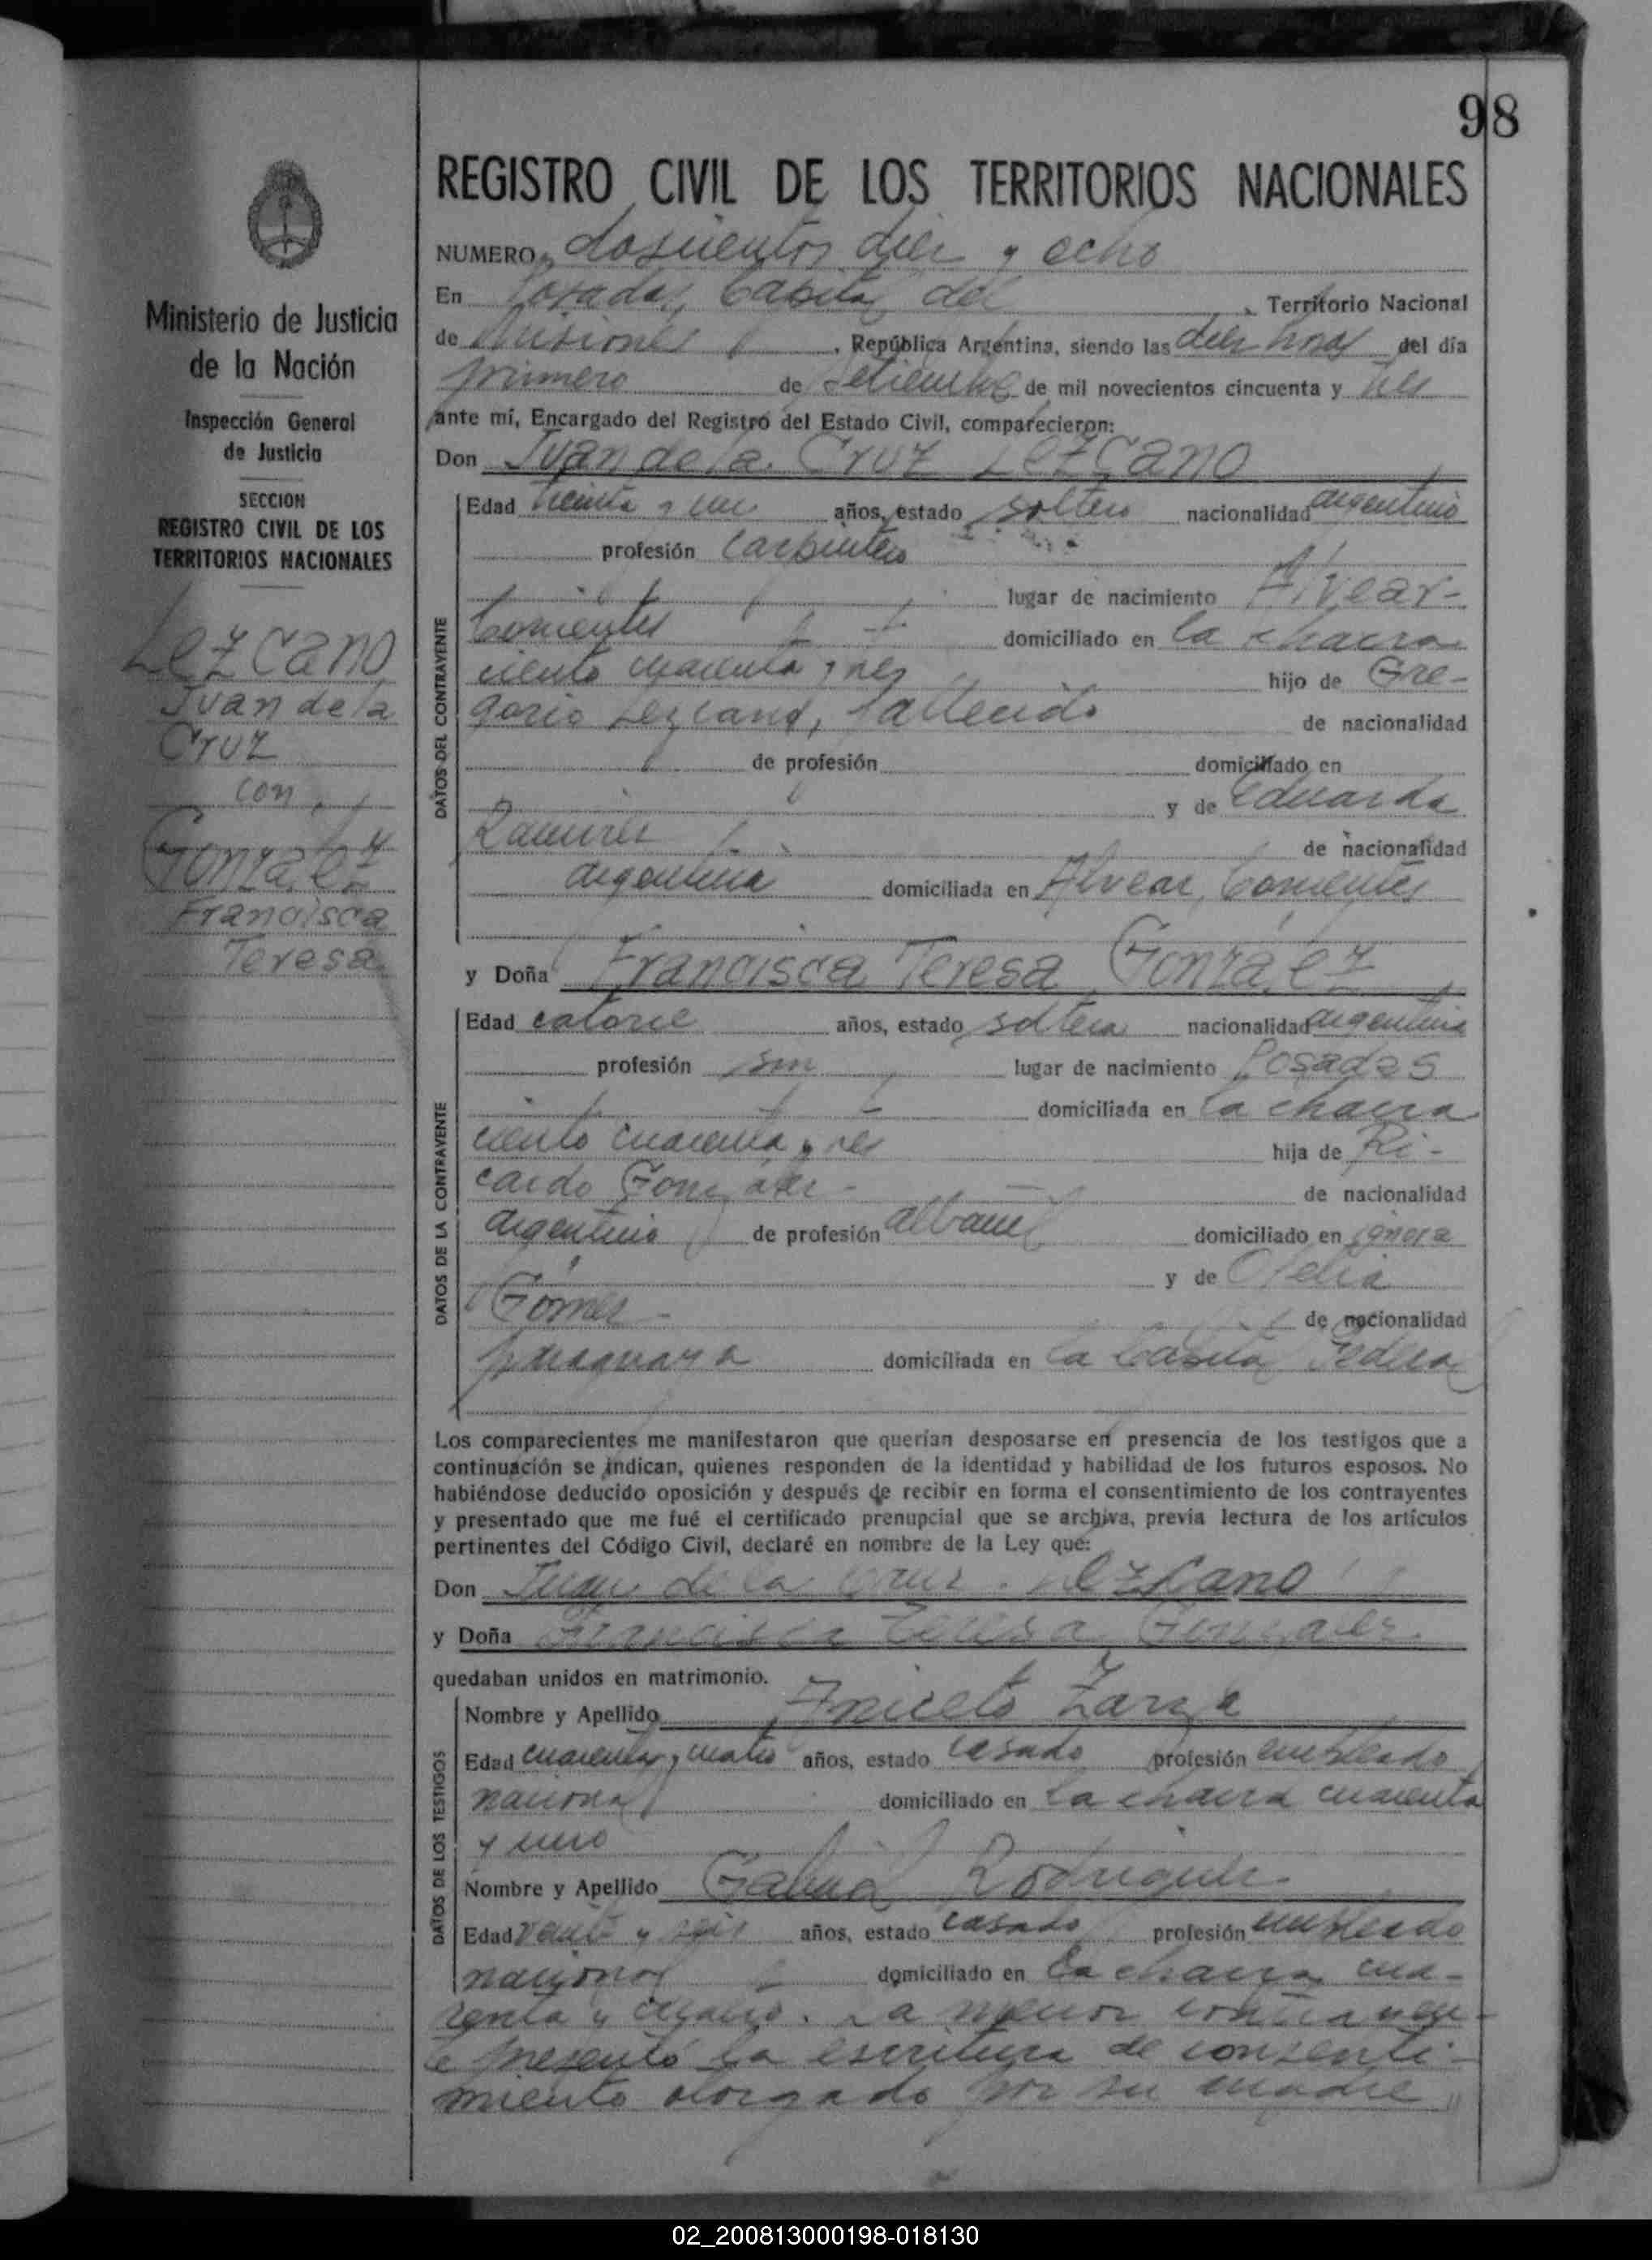 98
REGISTRO CIVIL DE LOS TERRITORIOS NACIONALES
NUMERO doscientos diez y ocho
En Posadas, Capital del , Territorio Nacional
de Misiones , República Argentina, siendo las diez horas del día
primero de Setiembre de mil novecientos cincuenta y tres
ante mí, Encargado del Registro del Estado Civil, comparecieron:
Don Juan de la Cruz Lezcano
Edad treinta y un años, estado soltero nacionalidad argentino
profesión Carpintero
lugar de nacimiento Alvear-
Corrientes domiciliado en la chacra
ciento cuarenta y tres hijo de Gre-
gorio Lezcano, fallecido de nacionalidad
de profesión domiciliado en
y de Eduarda
Ramirez de nacionalidad
argentina domiciliada en Alvear, Corrientes
DATOS DEL CONTRAYENTE
y Doña Francisca Teresa Gonzalez
Edad catorce años, estado soltera nacionalidad argentina
profesión sin lugar de nacimiento Posadas
domiciliada en la chacra
ciento cuarenta y tres hija de Ri-
cardo Gonzalez - de nacionalidad
argentino de profesión albañil domiciliado en ignora
y de Ofelia
Gomez - de nacionalidad
paraguaya domiciliada en la Capital Federal
DATOS DE LA CONTRAYENTE
Los comparecientes me manifestaron que querían desposarse en presencia de los testigos que a
continuación se indican, quienes responden de la identidad y habilidad de los futuros esposos. No
habiéndose deducido oposición y después de recibir en forma el consentimiento de los contrayentes
y presentado que me fué el certificado prenupcial que se archiva, previa lectura de los artículos
pertinentes del Código Civil, declaré en nombre de la Ley que:
Don Juan de la Cruz Lezcano
y Doña Francisca Teresa Gonzalez
quedaban unidos en matrimonio.
Nombre y Apellido Aniceto Zarza
Edad cuarenta y cuatro años, estado casado profesión empleado
nacional domiciliado en la chacra cuarenta
y uno
Nombre y Apellido Gabriel Rodriguez
Edad veinte y seis años, estado casado profesión empleado
nacional domiciliado en la chacra cua-
renta y cuatro. La menor contrayen-
te presentó la escritura de consenti-
miento otorgado por su madre
DATOS DE LOS TESTIGOS
Ministerio de Justicia
de la Nación
Inspección General
de Justicia
SECCION
REGISTRO CIVIL DE LOS
TERRITORIOS NACIONALES
Lezcano
Juan de la
Cruz
con
Gonzalez
Francisca
Teresa
02_200813000198-018130